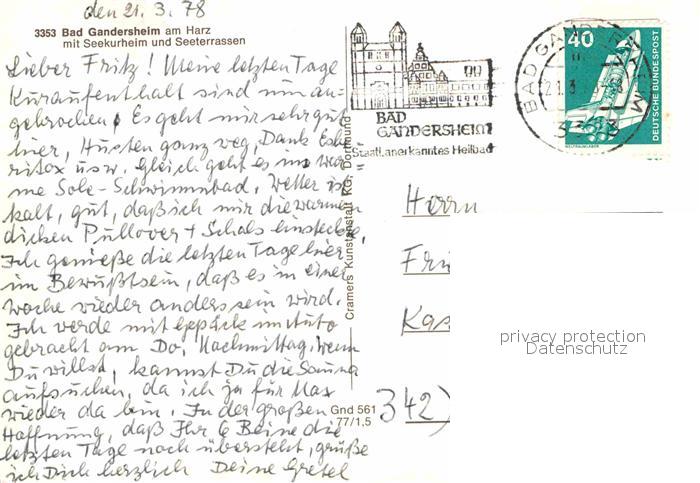 den 21. 3. 78
3353 Bad Gandersheim am Harz
mit Seekurheim und Seeterrassen
Lieber Fritz! Meine letzten Tage
Kuraufenthalt sind nun an-
gebrochen. Es geht mir sehr gut
hier, Husten ganz weg, Dank Esbe
ritox usw. Gleich geht es ins war
me Sole-Schwimmbad. Wetter is
kalt, gut, daß ich mir die warme
dicken Pullover + Schals einsteckte,
Ich genieße die letzten Tage hier
im Bewußtsein, daß es in einer
Woche wieder anders sein wird.
Ich werde mit Gepäck im Auto
gebracht am Do. Nachmittag, wenn
Du willst, kannst Du die Sauna
aufsuchen, da ich ja für Max
wieder da bin. In der großen
Hoffnung, daß Ihr 6 Beine die
letzten Tage noch übersteht, grüße
ich Dich herzlich Deine Gretel
Cramers Kunstanstalt KG. Dortmund
Gnd 561
77/1,5
BAD
GANDERSHEIM
Staatl. anerkanntes Heilbad
BAD GANDERSHEIM
21.3.78
3353
40
DEUTSCHE BUNDESPOST
WELTRAUMLABOR
Herrn
Fri
Kas
342
privacy protection
Datenschutz